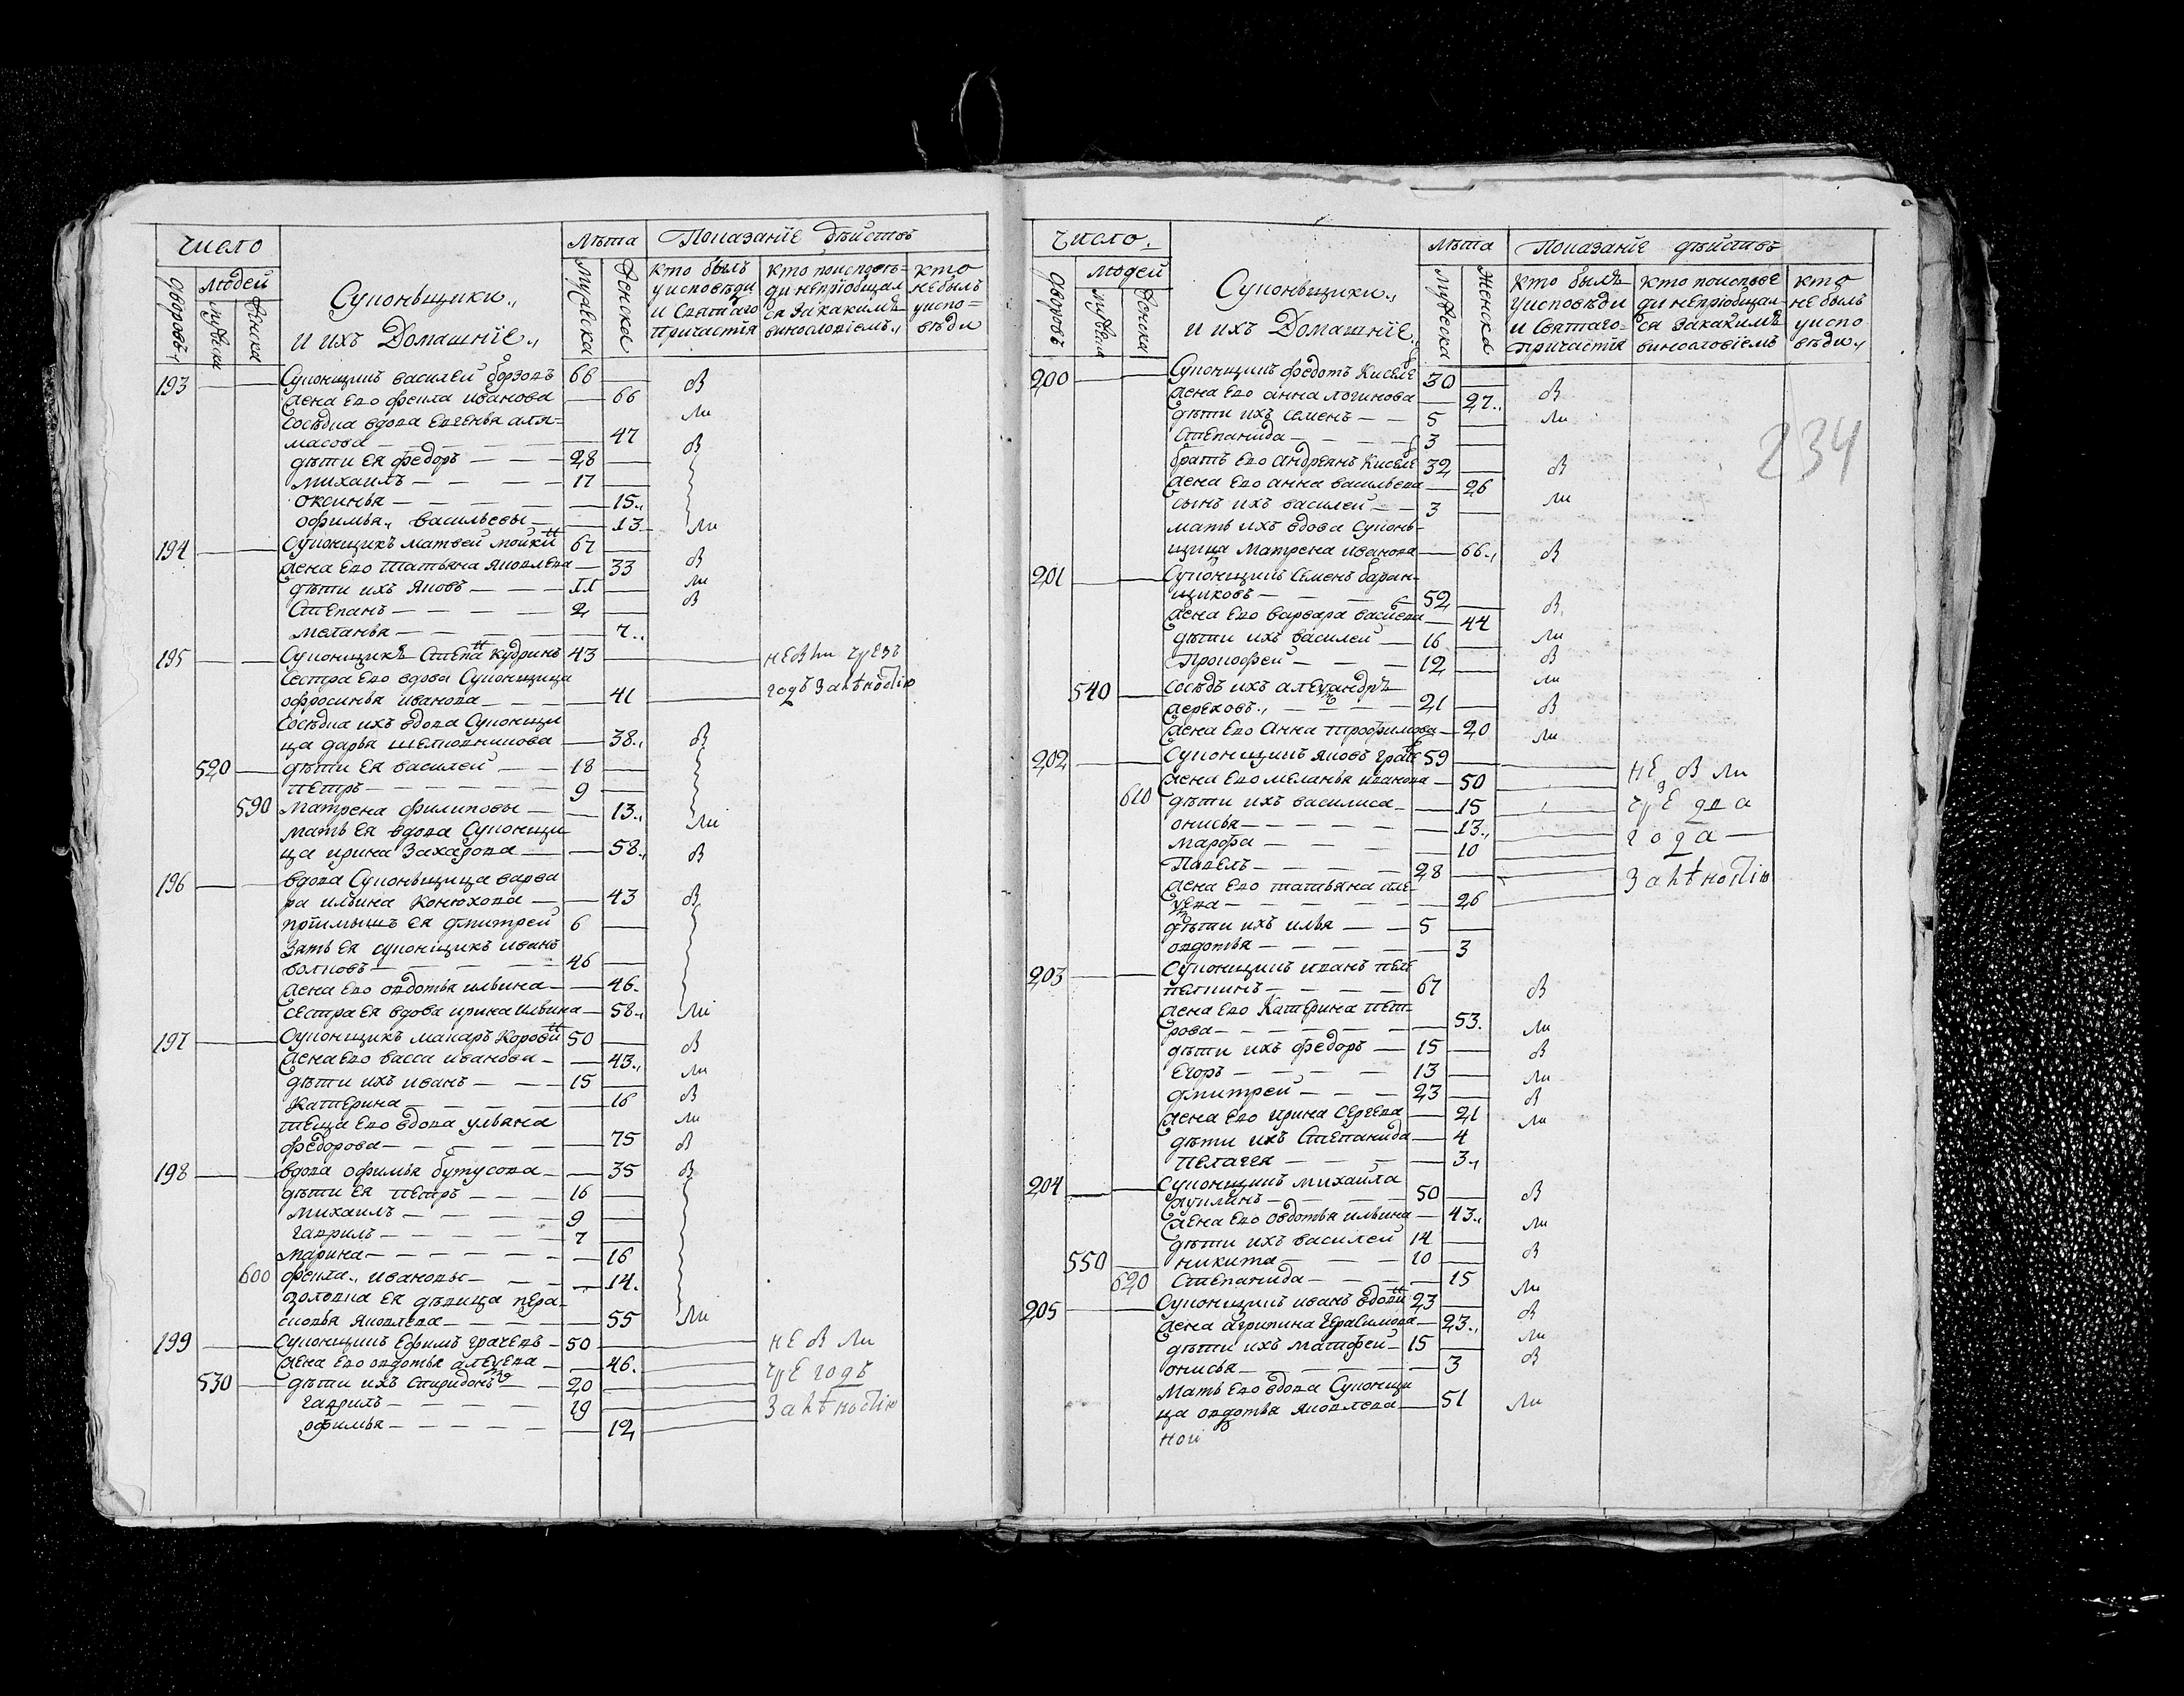 число
Суконьщики,,
и ихъ Домашніе.,
лѣта
Показаніе дѣйствъ
дворовъ.,
людей
мужеска
женска
мужеска
женска
кто былъ
у исповѣди
и Святаго
Причастія
кто по исповѣ=
ди непріобщал
ся за какимъ
винословіемъ.,
кто
небылъ
у испо=
вѣди
193 Суконщикъ василей борзовъ 68 в
жена ево фекла иванова 66 ли
сосѣдка вдова Евгенья ала=
масова 47 в
дѣти ея федоръ 28
михаилъ 17
оксинья 15.,
офимья,, васильевы 13 ли
194 Суконщикъ матвей 67 в
жена ево татьяна яковлева 33 ли
дѣти ихъ яковъ 11 в
Степанъ 2
меланья 7.,
195 Суконщикъ Степанъ кудринъ 43 невли чрезъ
сестра ево вдова Суконщица
офросинья иванова 41 годъ
сосѣдка ихъ вдова Суконщи
ца дарья 38., в
520 дѣти ея василей 18
петръ 9
590 матрена филиповы 13., ли
мать ея вдова Суконщи
ца ирина Захарова 58., в
196 вдова Суконьщица варва
ра ильина Конюхова 43 в
пріимышъ ея дмитрей 6
Зять ея суконщикъ иванъ
волковъ 46
жена ево овдотья ильина 46.
сестра ея вдова ирина ильина 58., ли
197 Суконщикъ макаръ 50 в
жена ево васса иванова 43., ли
дѣти ихъ иванъ 15 в
Катерина 16 ли
теща ево вдова ульяна
федорова 75 в
198 вдова офимья бутусова 35 в
дѣти ея петръ 16
михаилъ 9
гаврилъ 7
марина 16
600 фекла,, ивановы 14.
золовка ея дѣвица пера=
сковья яковлева 55 ли
199 Суконщикъ Ефимъ грачевъ 50 не в ли
жена ево овдотья алексева 46. чре годъ
530 дѣти ихъ Спиридонъ 20
гаврилъ 19
офимья 12
число.
Суконьщики.,
и ихъ Домашніе.,
лѣта
Показаніе дѣйствъ
дворовъ
людей
мужеска
женска
мужеска
женска
кто былъ
у исповѣди
и Святаго=
Причастія
кто по исповѣ
ди непріобщал=
ся за какимъ
винословіемъ
кто
небылъ
у испо
вѣди.,
234
200 Суконщикъ федотъ Киселе 30 в
жена ево анна логинова 27., ли
дѣти ихъ семенъ 5
Степанида 3
братъ ево андреянъ Киселе 32 в
жена ево анна васильева 26 ли
сынъ ихъ василей 3
мать ихъ вдова Суконь=
щица матрена иванова 66., в
201 Суконщикъ Семенъ баран=
щиковъ 52 в
жена ево варвара 44 ли
дѣти ихъ василей 16 в
Прокофей 12 ли
540 сосѣдъ ихъ александръ
жереховъ., 21 в
жена ево Анна трофимова 20 ли
202 Суконщикъ яковъ 59 не в ли
жена ево меланья иванова 50
610 дѣти ихъ василиса 15 чре два
онисья 13., года
марфа 10
Павелъ 28
жена ево татьяна але=
ксева 26
дѣти ихъ илья 5
овдотья 3
203 Суконщикъ иванъ 67 в
жена ево Катерина пет=
рова 53. ли
дѣти ихъ федоръ 15 в
Егоръ 13 ли
дмитрей 23 в
жена ево ирина сергева 21 ли
дѣти ихъ Степанида 4
пелагея 3.,
204 Суконщикъ михайла
50 в
жена ево овдотья ильина 43., ли
дѣти ихъ василей 14
550 никита 10 в
620 Степанида 15 ли
205 Суконщикъ иванъ 23 в
жена агрипина герасимова 23., ли
дѣти ихъ матфей 15 в
онисья 3
Мать ево вдова Суконщи
ца овдотья яковлева 51 ли